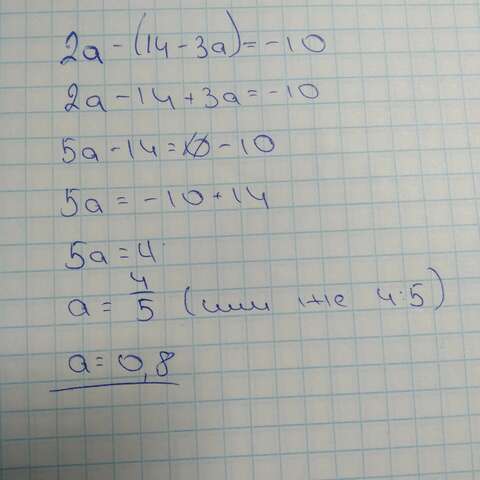 2a - (14 - 3a) = -10
2a - 14 + 3a = -10
5a - 14 = -10
5a = -10 + 14
5a = 4
a = 4/5 (или же 4:5)
a = 0,8